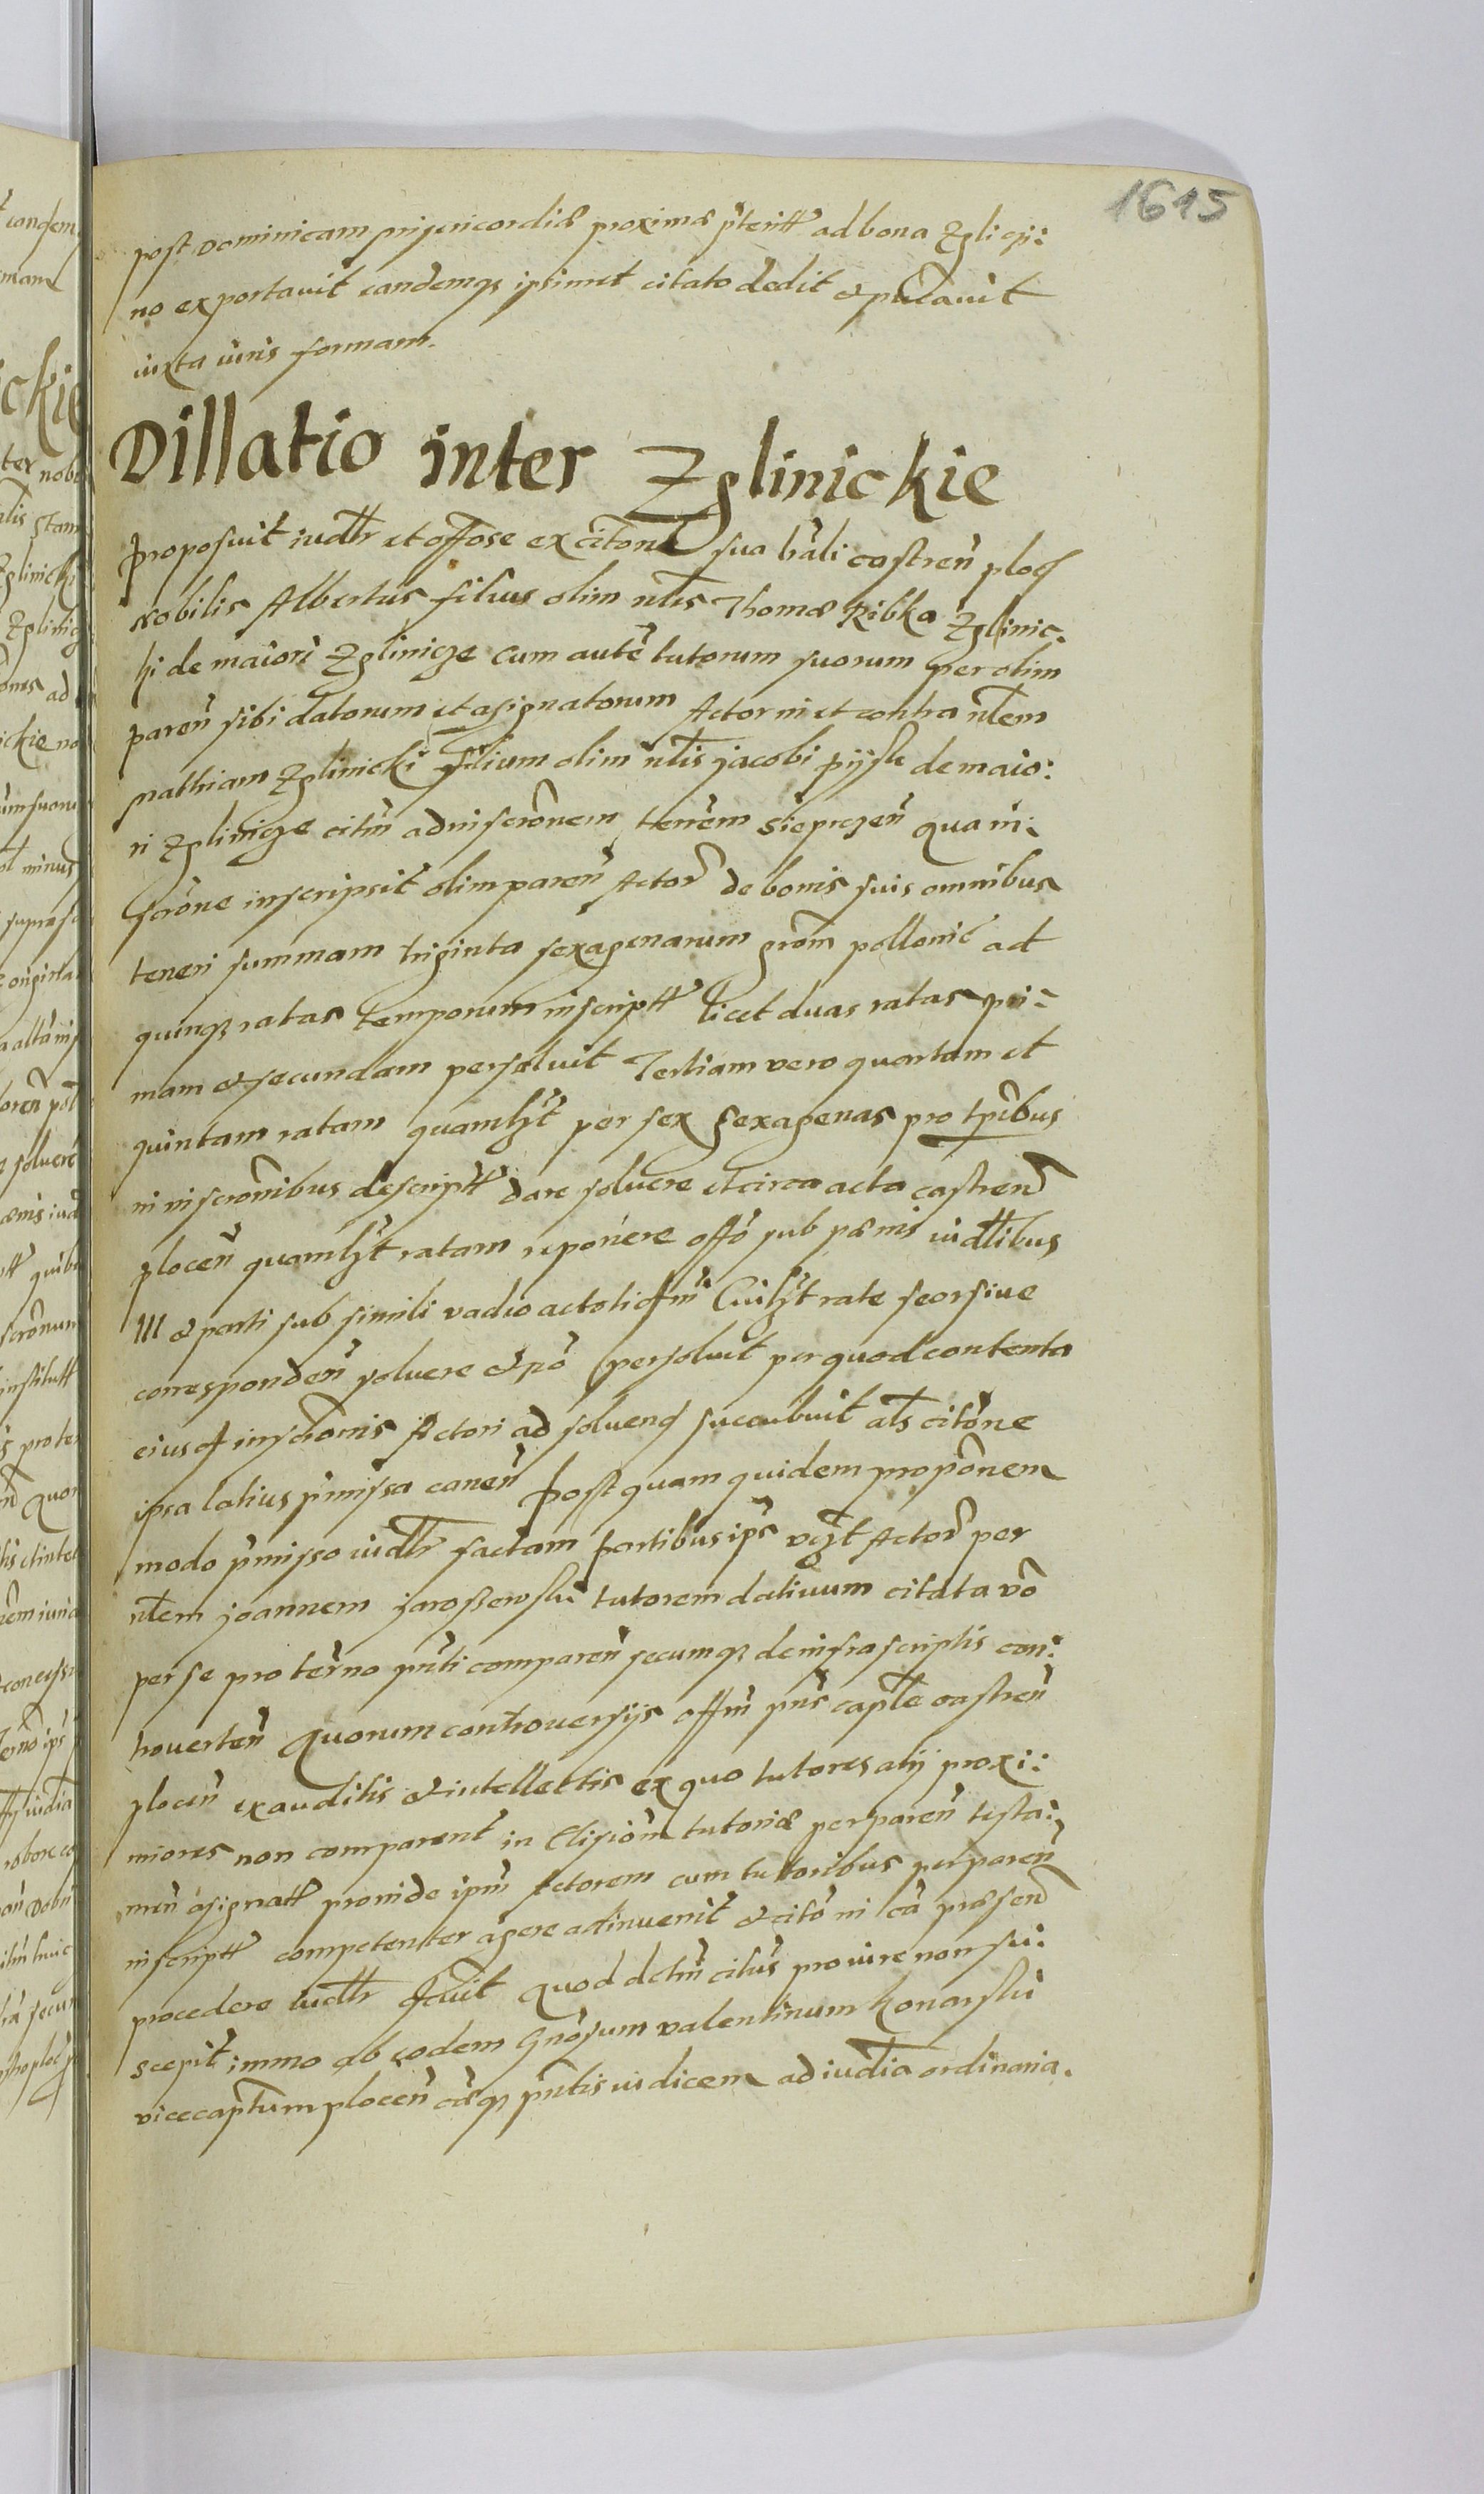 1615
post Dominicam misericordiæ proximæ p̃teritt ad bona Zgliczi:
no exportavit eandemqz ipsimet citato dedit et pñtavit
iuxta iuris formam.
Dillatio inter Zglinickie
Proposuit iudtr et offose ex citone sua trali castreñ ploc
Nobilis Albertus filius olim nlis Thomæ Ribka Zglinic:
ki de maiori Zglinicze cum autẽ tutorum suorum per olim
pareñ sibi datorum et asignatorum Actor in et contra nlem
Mathiam Zglinicki filium olim nlis Jacobi pijsk de maio:
ri Zglinicze citm ad inscronem terrẽm Sieprczeñ qua in:
scrõne inscripsit olim pareñ Actor de bonis suis omnibus
teneri summam triginta sexagenarum grom pollonic ad
quinqz ratas temporum inscriptt licet duas ratas pri:
mam et secundam persoluit Tertiam vero quartam et
quintam ratam quamlzt per sex sexagenas pro tpribus
in inscronibus descriptt dare soluere et circa acta castreñ
ploceñ quamlzt ratam reponere offo sub pænis iudtlibus
III et parti sub simili vadio actotiesm Cuilzt rate seorsiue
correspondeñ soluere et nõ persoluit per quod contenta
eiusd inscronis Actori ad soluend succubuit als citõne
ipsa latius p̃missa caneñ Post quam quidem proponem
modo p̃misso iudtr factam partibus ips vzt Actor per
nlem Joannem Jaroszewski tutorem datiuum citata vo
per se pro termo pñti compareñ secumqz de infrascriptis con:
trouerteñ Quorum controuersijs offm pns captle castreñ
ploceñ exauditis et intellectis ex quo tutores alij proxi:
miores non comparent in Elisiom tutoriæ per pareñ testa:
meñ asignatt proinde ipm Actorem cum tutoribus per pareñ
inscriptt competenter agere adinuenit et cito in ca præsend
procedere iudtr decreuit Quod detm citus pro iure non su:
scepit immo ab eodem Gnosum Valentinum Konarski
vicecaptum ploceñ cæqz pñtis iudicem ad iudtia ordinaria.